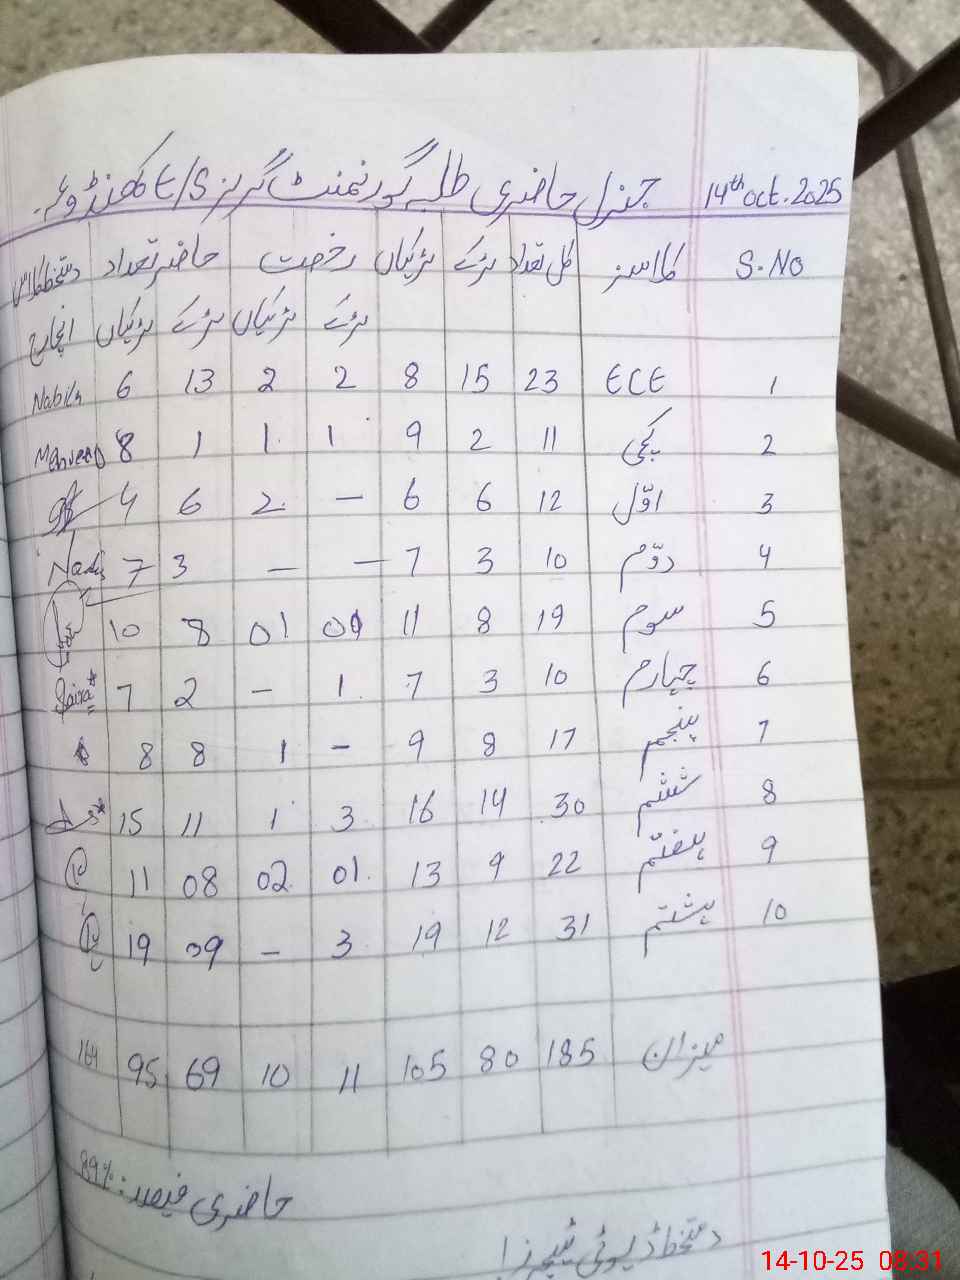 14th oct. 2025 جنرل حاضری طلبہ گورنمنٹ گرلز E/S کھنڈوعہ۔
S.NO کلاسز کل تعداد لڑکے لڑکیاں رخصت حاضر تعداد دستخط کلاس
لڑکے لڑکیاں لڑکے لڑکیاں انچارج
1 ECE 23 15 8 2 2 13 6 Nabila
2 کچی 11 2 9 1 1 1 8
3 اوّل 12 6 6 — 2 6 4
4 دوّم 10 3 7 — — 3 7
5 سوم 19 8 11 01 8 10
6 چہارم 10 3 7 1 — 2 7 Saira
7 پنجم 17 8 9 — 1 8 8
8 ششم 30 14 16 3 1 11 15
9 ہفتم 22 9 13 01 02 08 11
10 ہشتم 31 12 19 3 — 09 19
میزان 185 80 105 11 10 69 95 164
حاضری فیصد: 89%
دستخط ڈیوٹی ٹیچرز:
14-10-25 08:31